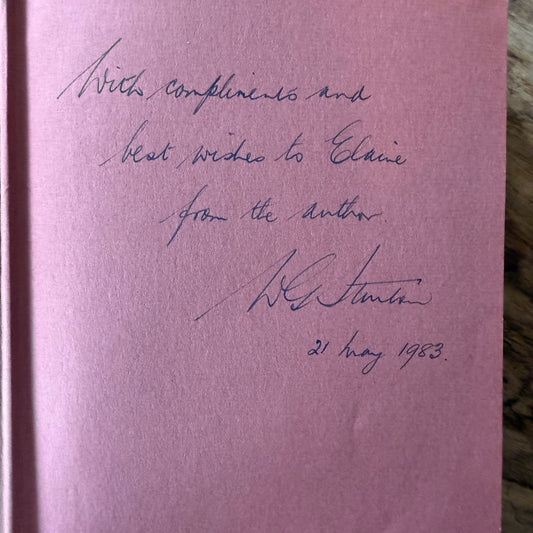 With compliments and
best wishes to Elaine
from the author.
W G Stanton
21 May 1983.